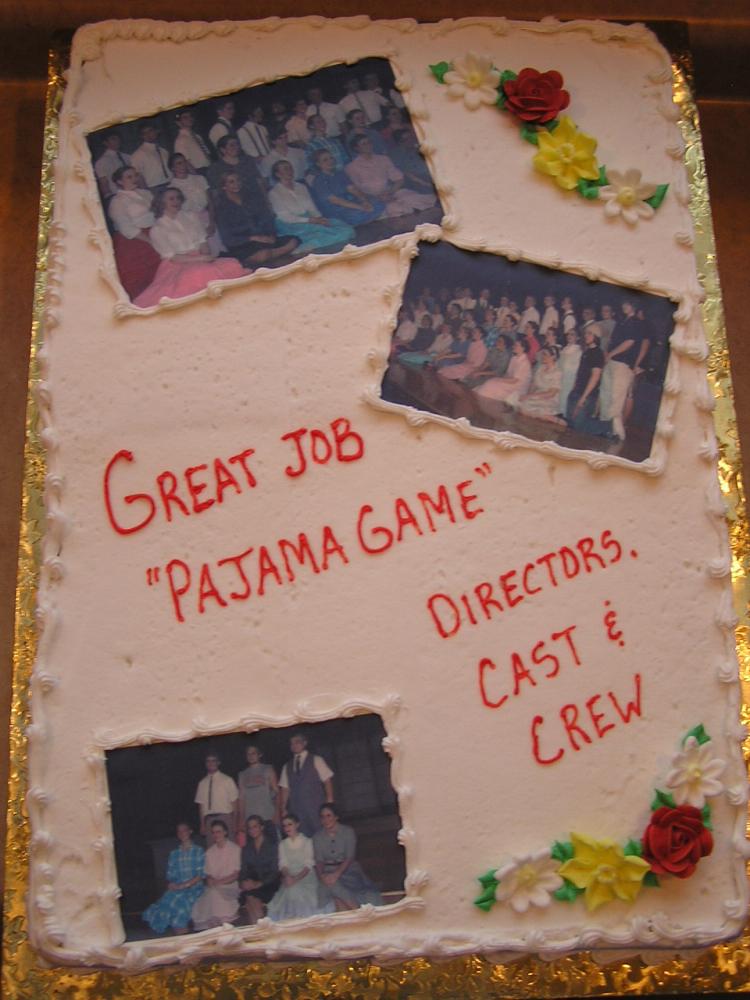 GREAT JOB
"PAJAMA GAME"
DIRECTORS.
CAST &
CREW